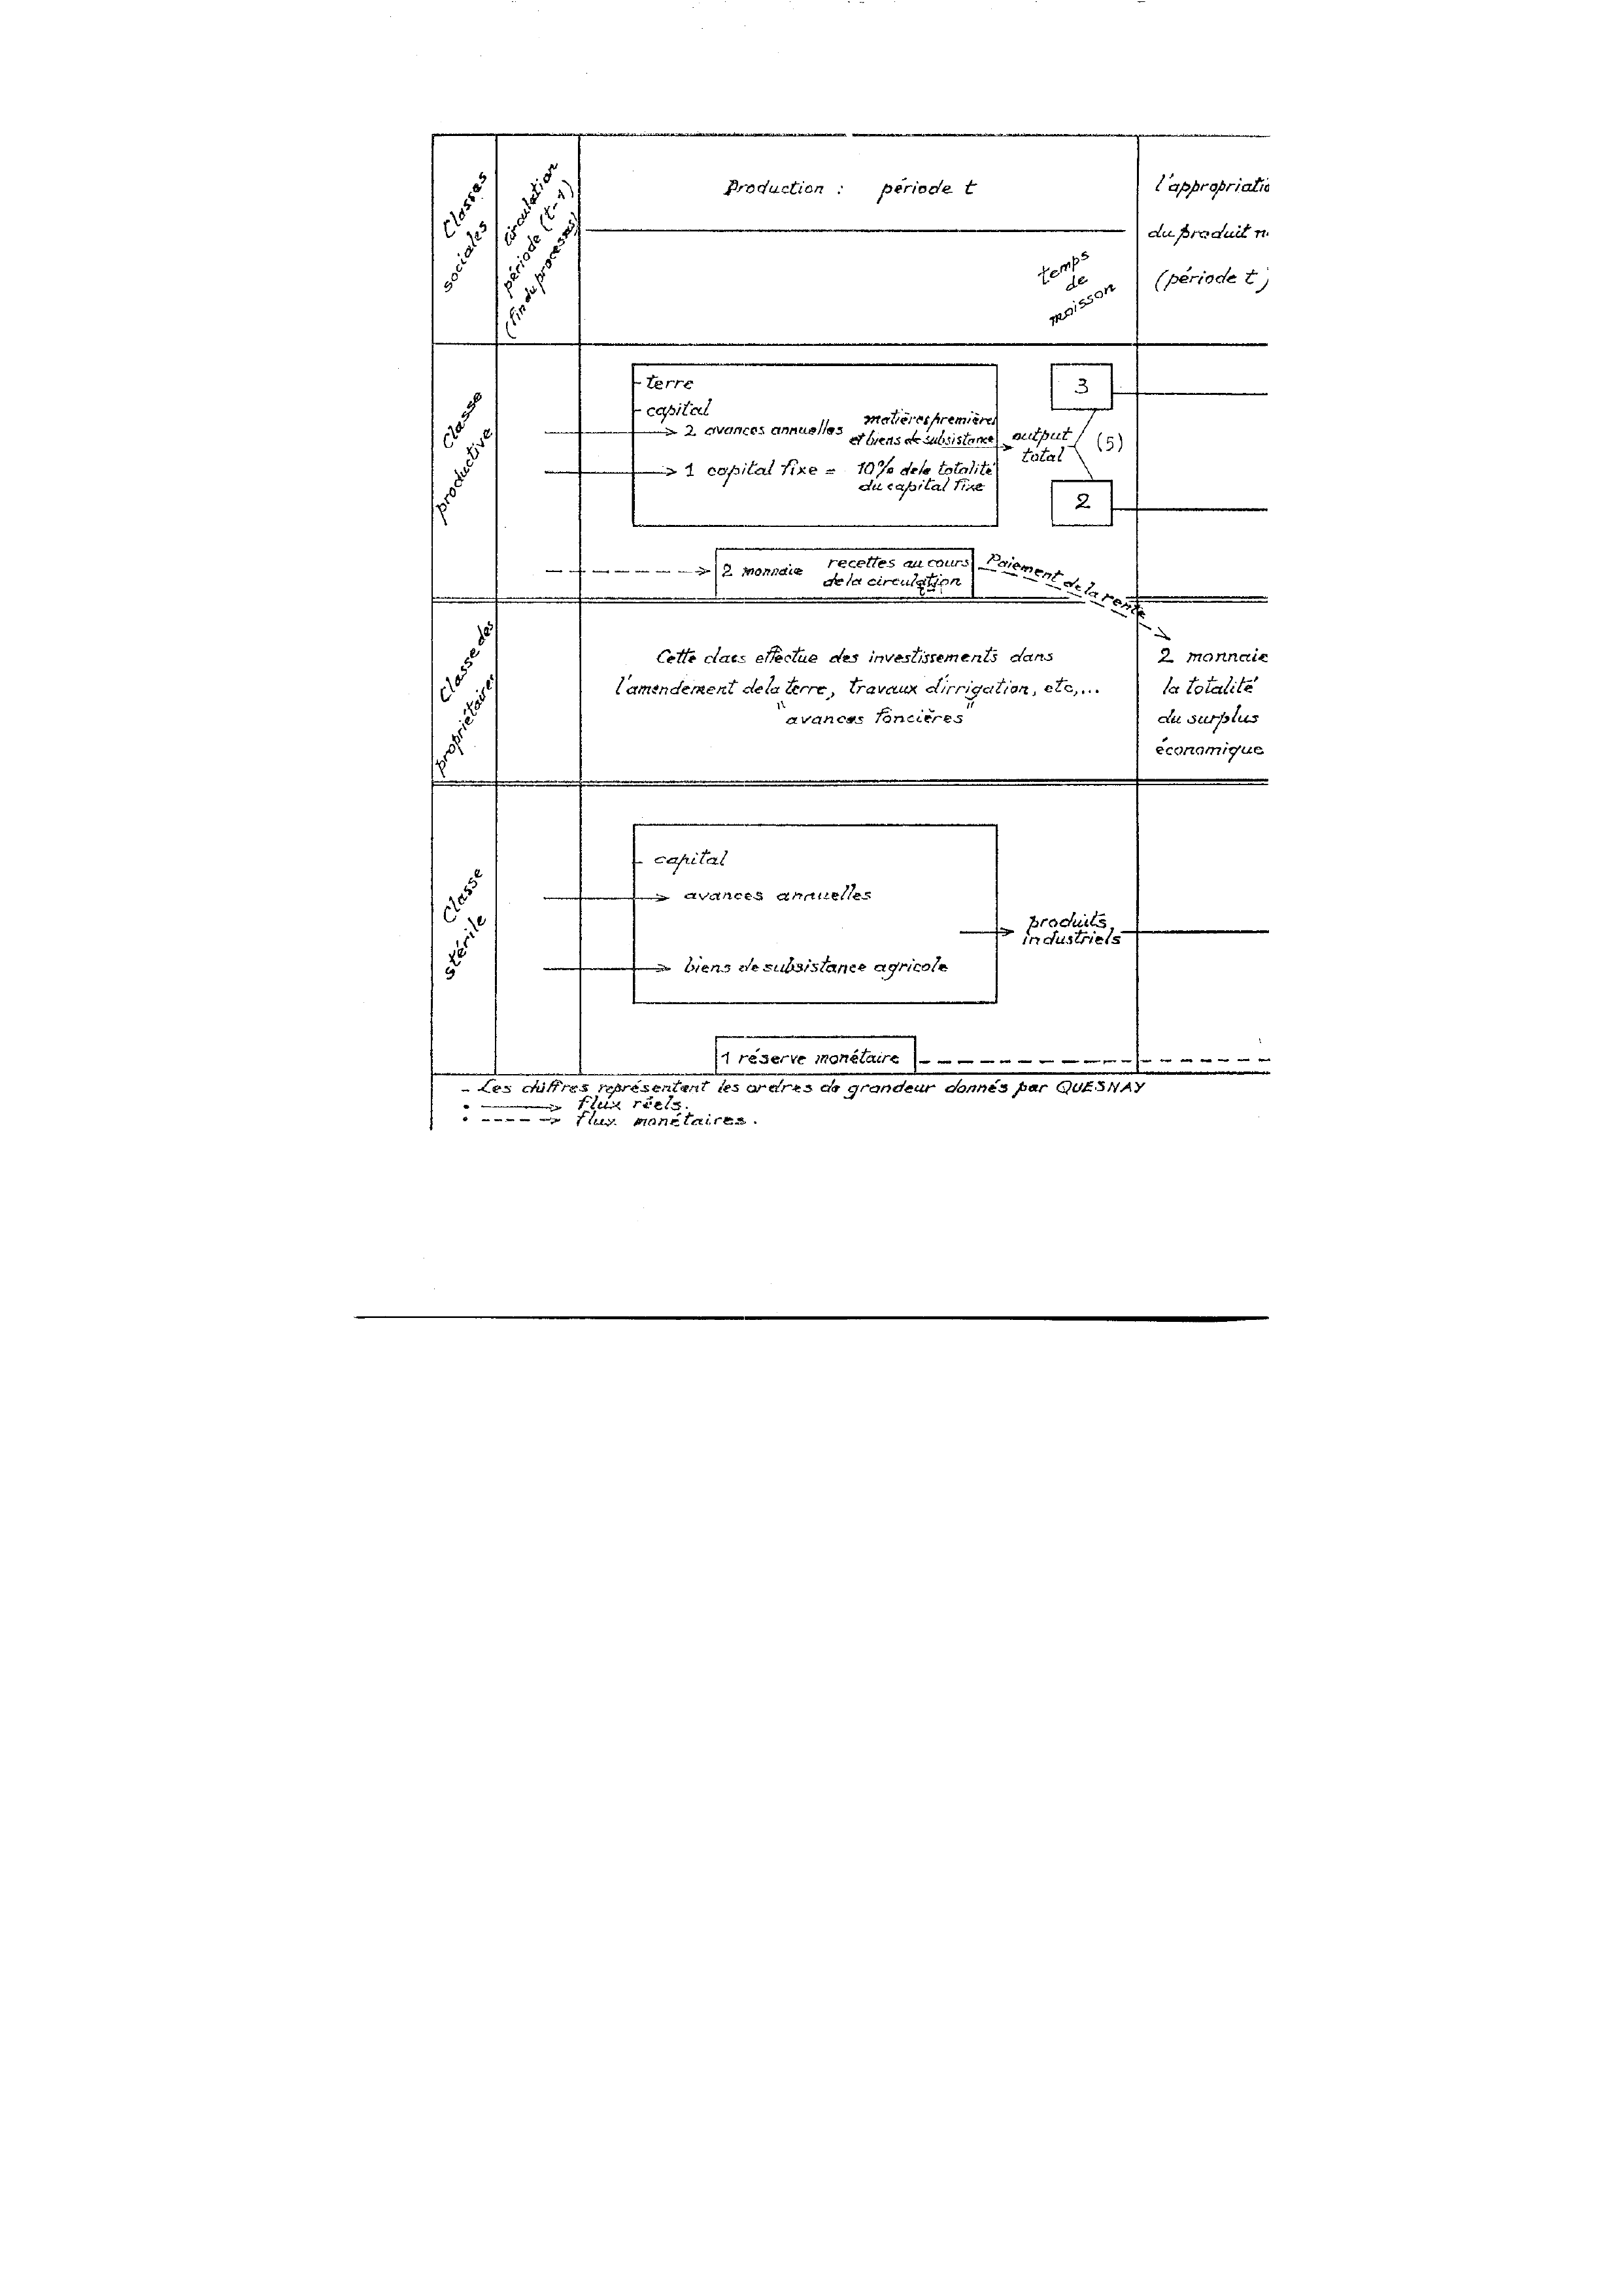 Classes
sociales
circulation
période (t-1)
(fin du processus)
Production : période t
temps
de
moisson
l'appropriatio
du produit n
(période t)
Classe
productive
terre
capital
2 avances annuelles matières premières
et biens de subsistance
1 capital fixe = 10% de la totalité
du capital fixe
output
total
(5)
3
2
2 monnaie recettes au cours
de la circulation
Paiement de la rente
Classe des
propriétaires
Cette class effectue des investissements dans
l'amendement de la terre, travaux d'irrigation, etc,...
"avances foncières"
2 monnaie
la totalité
du surplus
économique
Classe
stérile
capital
avances annuelles
biens de subsistance agricole
produits
industriels
1 réserve monétaire
- Les chiffres représentent les ordres de grandeur donnés par QUESNAY
flux réels.
flux monétaires.